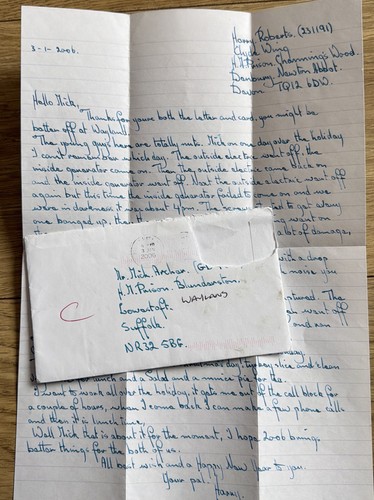 3-1-2006.
Harry Roberts. (231191)
Clyde Wing
H.M. Prison. Channings Wood.
Denbury, Newton Abbot.
Devon TQ12 6DW.
Hello Mick,
Thanks for yours both the letter and card, you might be
better off at Wayland.
The young guys here are totally nuts. Mick on one day over the holiday
I can't remember which day. The outside electric went off the
inside generator came on. Then the outside electric came back on
and the inside generator went off. Next the outside electric went off
again but this time the inside generator failed to come on and we
were in darkness, it was about 4pm. The screws
one banged up, then
a lot of damage,
with a drop
noise you
The
went off
Mr. Mick Archer.
H.M. Prison Blundeston.
Lowestoft. WAYLAND
Suffolk.
NR32 5BG.
day, turkey slice and
for lunch and a Salad and a mince pie for tea.
I went to work all over the holiday, it gets me out of the cell block for
a couple of hours, when I come back I can make a few phone calls
and then it is lunch time.
Well Mick that is about it for the moment, I hope 2006 brings
better things for the both of us.
All best wish and a Happy New Year to you.
Your pal.
Harry.